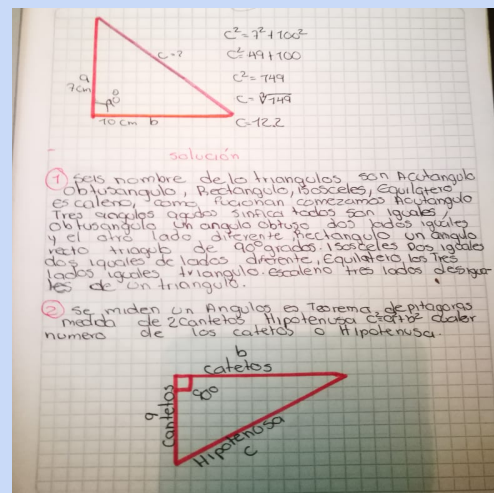 c²=7²+100²
c²=49+100
c=?
c²=149
a
7cm
90°
c=√149
10cm b
c=12.2
solución
① seis nombre de lo triangulos son Acutangulo
obtusangulo, Rectangulo, isosceles, Equilatero
escaleno, como Fucionan comezamos Acutangulo
Tres angulos agudos sinfica todos son iguales,
obtusangulo un angulo obtuso dos lados iguales
y el otro lado, diferente Rectangulo un angulo
recto triangulo de 90 grados. Isosceles Dos igdales
dos iguales de lados diferente, Equilatero, los Tres
lados iguales triangulo. escaleno tres lados desigua
les de un triangulo.
② se miden un Angulos es Teorema de pitagoras
medida de 2 cantetos Hipotenusa c²=a²+b²
numero de los catetos o Hipotenusa.
b
catetos
90°
a
cantetos
Hipotenusa
c